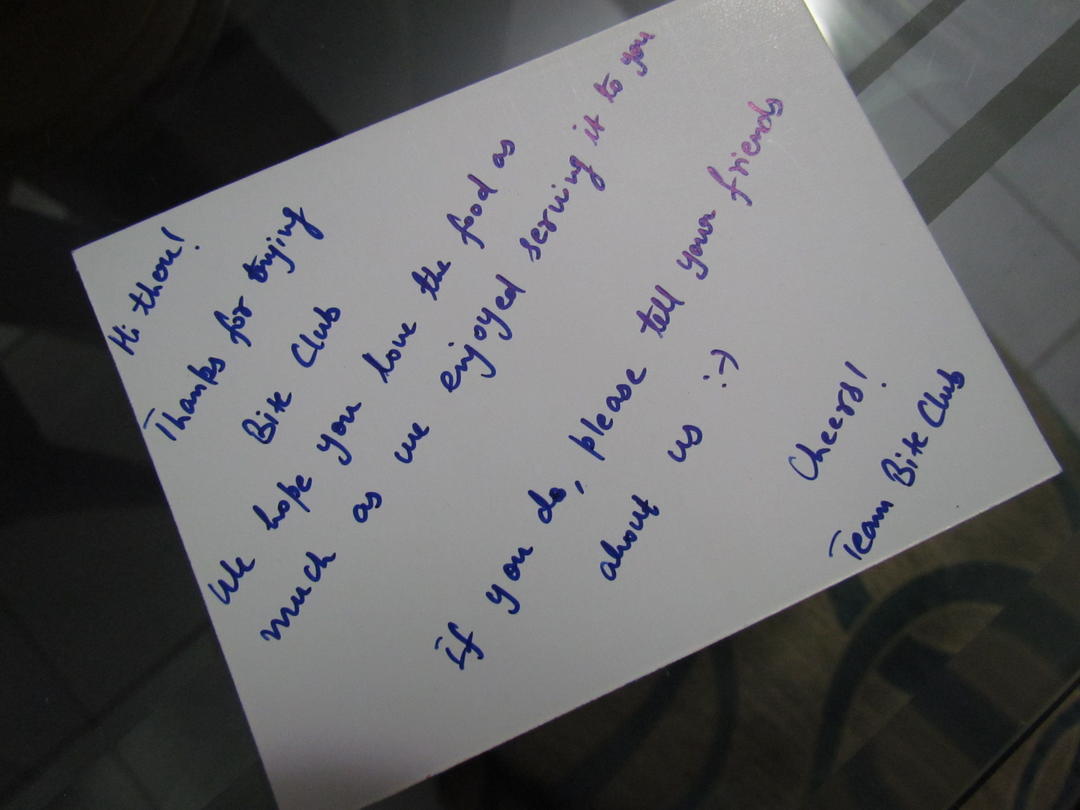 Hi there!
Thanks for trying
Bite Club
We hope you love the food as
much as we enjoyed serving it to you
If you do, please tell your friends
about us :-)
Cheers!
Team Bite Club